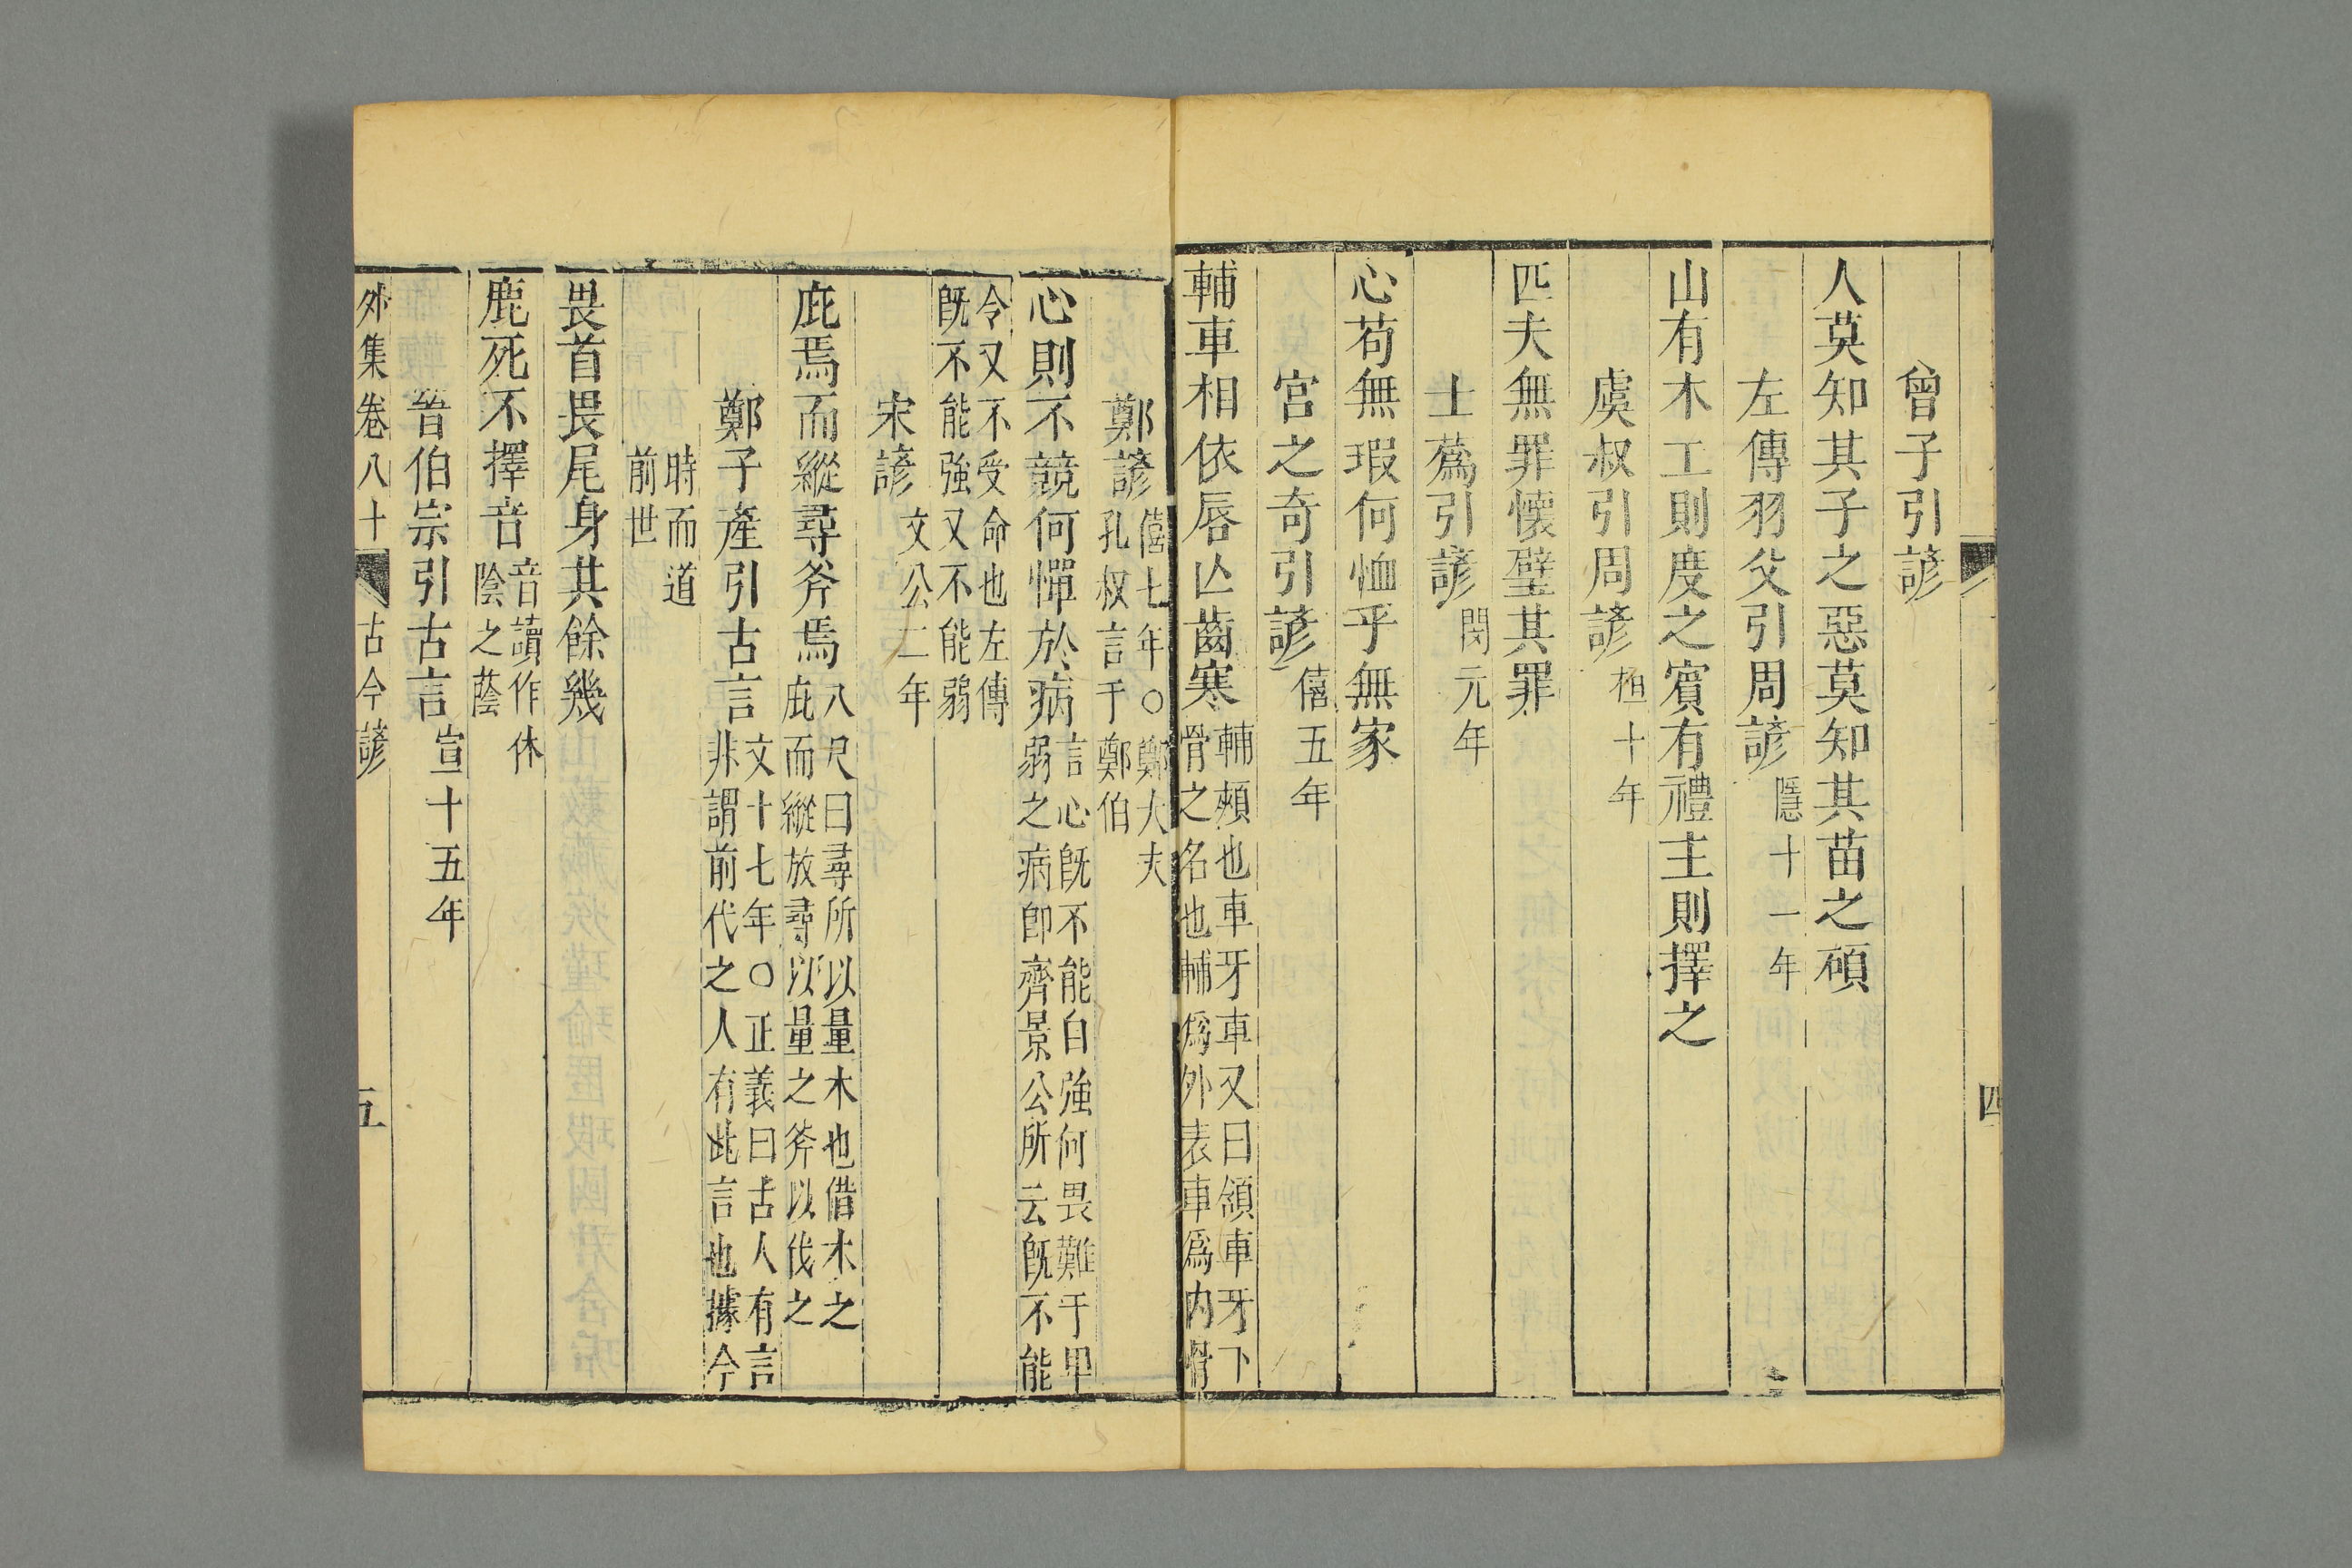 曾子引諺
人莫知其子之惡莫知其苗之碩
左傳羽父引周諺隱十一年
山有木工則度之賓有禮主則擇之
虞叔引周諺桓十年
匹夫無罪懷璧其罪
士蔿引諺閔元年
心苟無瑕何恤乎無家
宮之奇引諺僖五年
輔車相依唇亾齒寒
輔頰也車牙車又曰頷車牙下
骨之名也輔爲外表車爲內骨
四
鄭諺
僖七年○鄭大夫
孔叔言于鄭伯
心則不競何憚於病
言心旣不能自強何畏難于甲
弱之病卽齊景公所云旣不能
令又不受命也左傳
旣不能強又不能弱
宋諺文公二年
庇焉而縱尋斧焉
八尺曰尋所以量木也借木之
庇而縱放尋以量之斧以伐之
鄭子產引古言
文十七年○正義曰古人有言
非謂前代之人有此言也據今
時而道
前世
畏首畏尾身其餘幾
鹿死不擇音
音讀作休
陰之蔭
晉伯宗引古言宣十五年
外集卷八十 古今諺 五